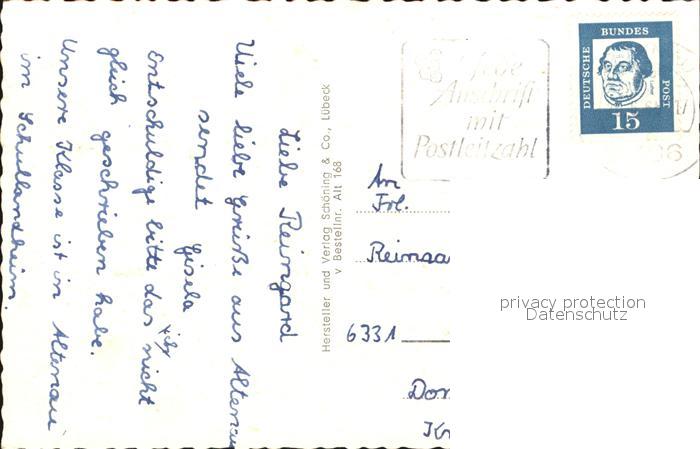 Liebe Reingard
Viele liebe Grüße aus Altenau
sendet Gisela
Entschuldige bitte das ich nicht
gleich geschrieben habe.
Unsere Klasse ist in Altenau
im Schullandheim.
Hersteller und Verlag Schöning & Co., Lübeck
v Bestellnr. Alt 168
Anschrift
mit
Postleitzahl
DEUTSCHE
BUNDES
POST
15
An
Frl.
Reinga
6331
Don
Kr
privacy protection
Datenschutz